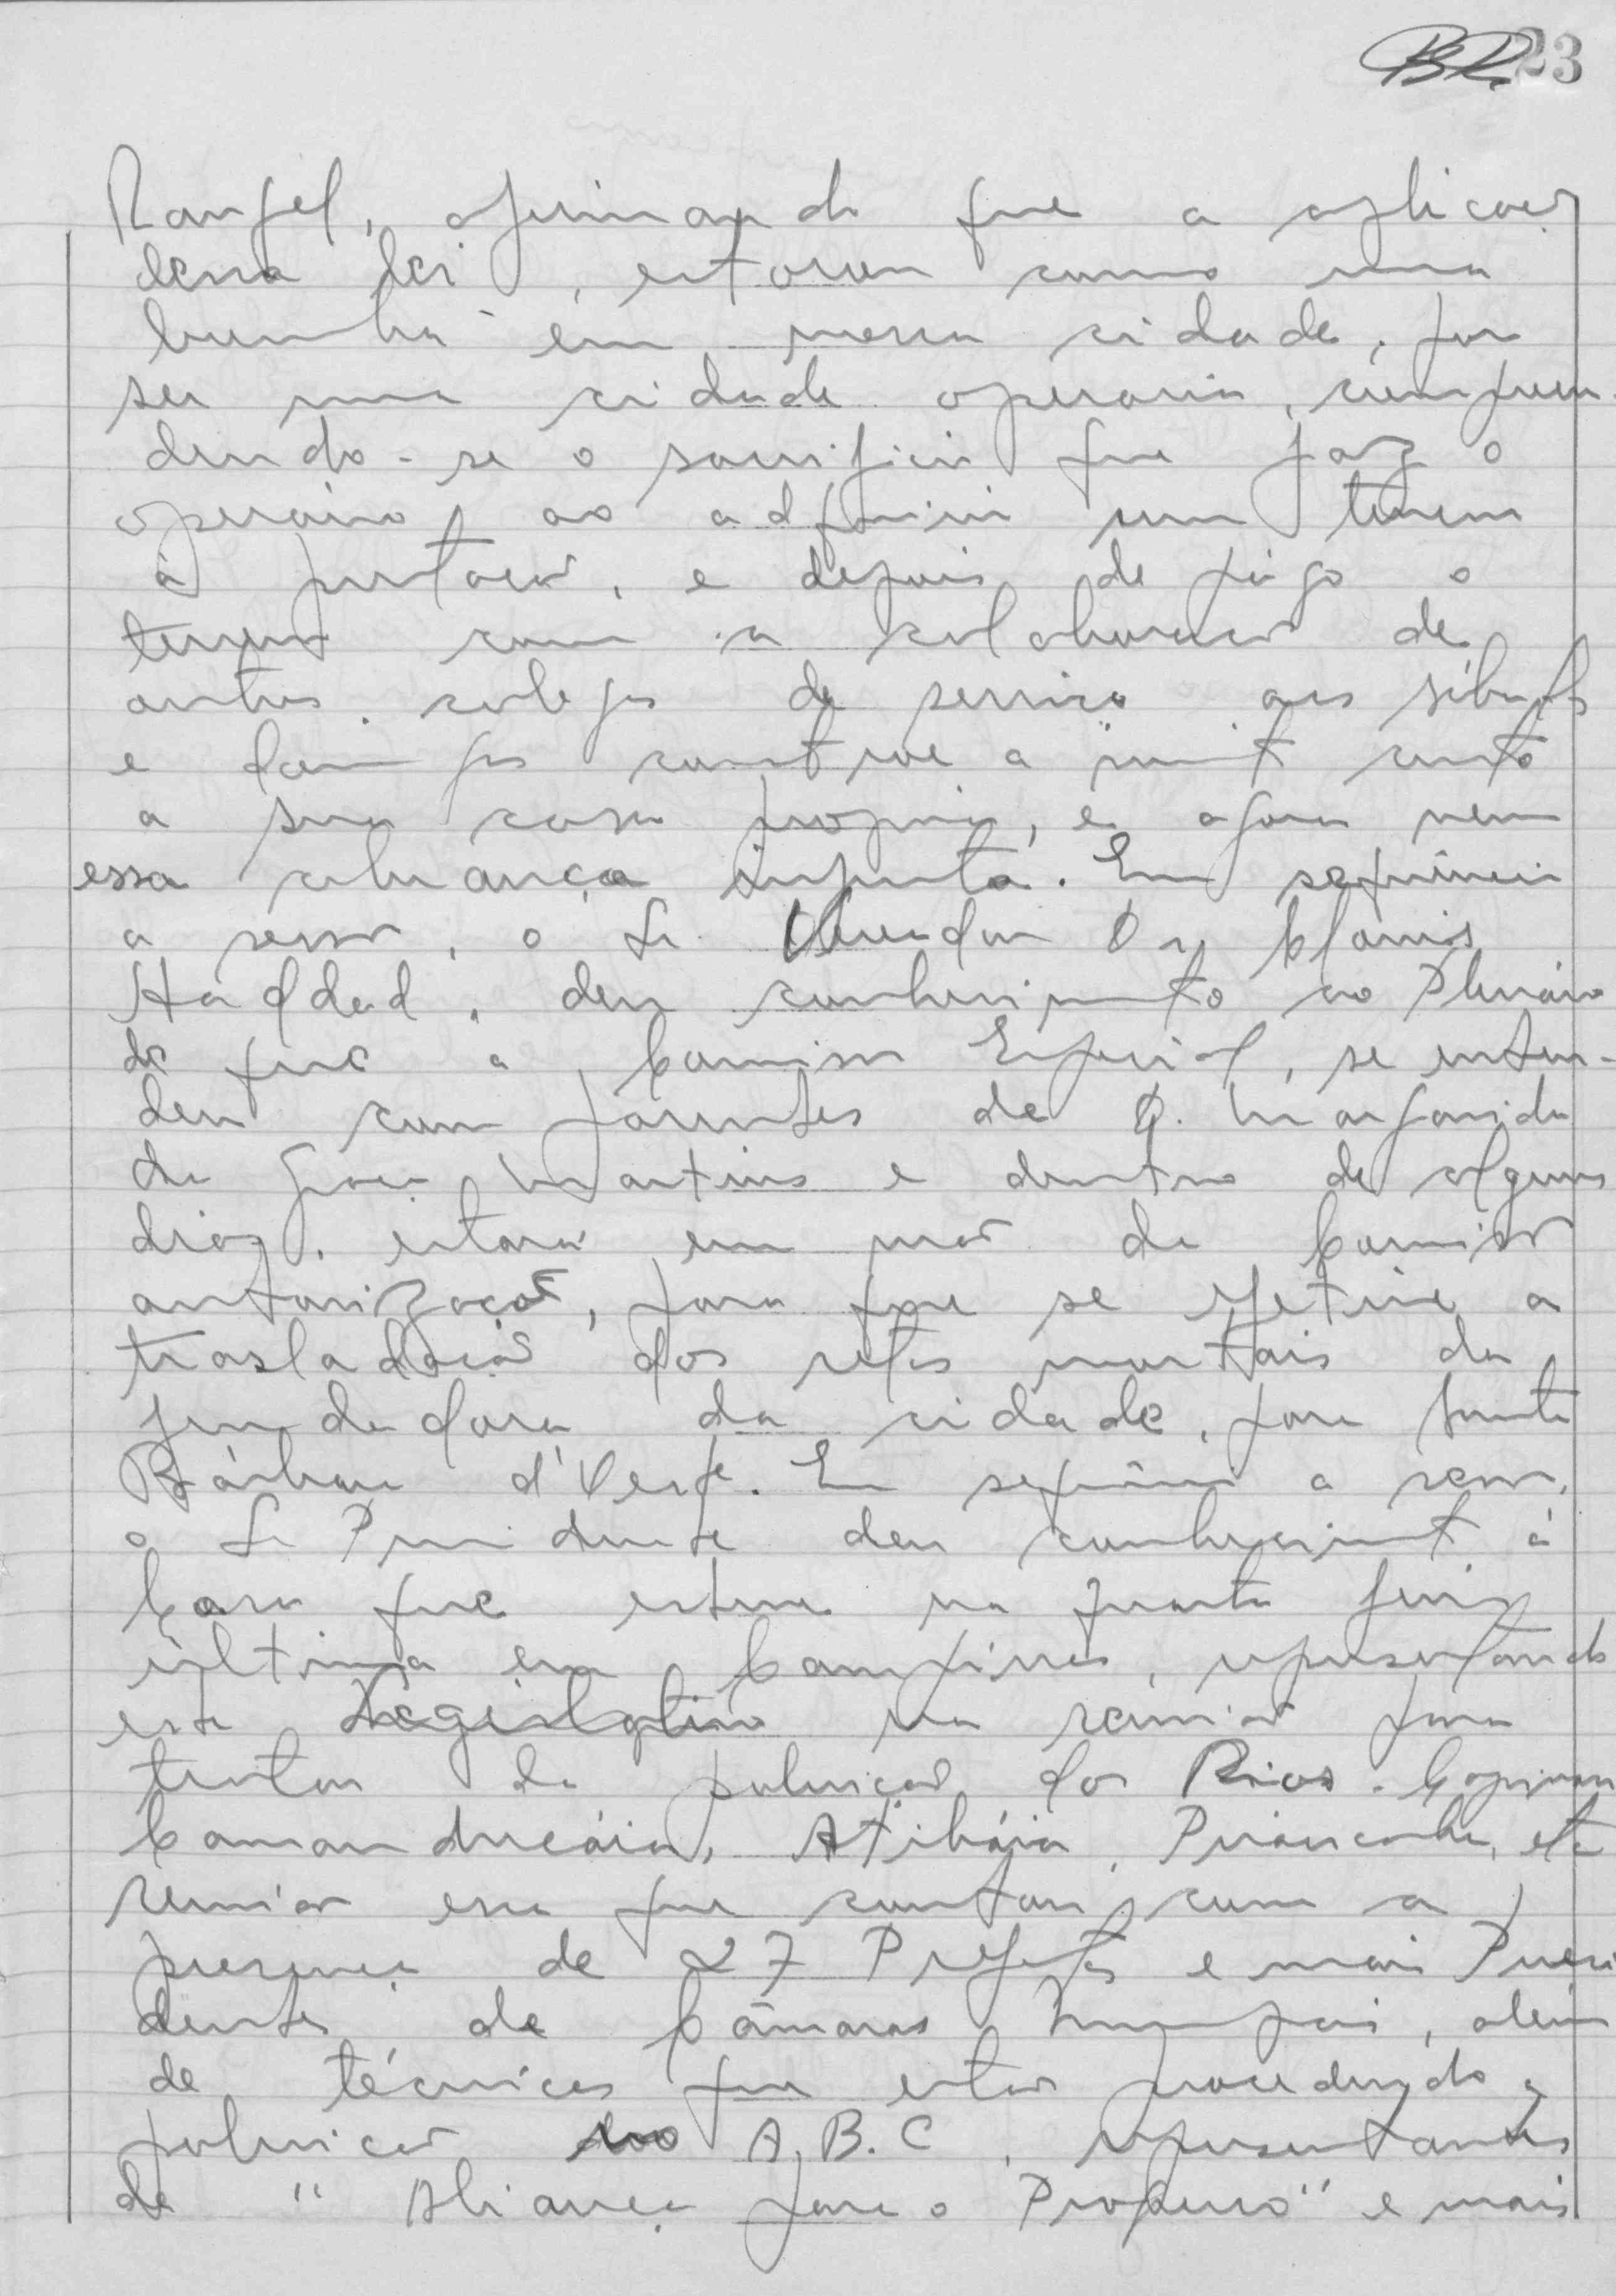 BR. 23
Rangel, afirmando que a aplicação
dessa lei, estourou como uma
bomba em nossa cidade, por
ser uma cidade operaria, compreen-
dendo-se o sacrificio que faz o
operário, ao adquirir um terreno
à prestação, e depois de pago o
terreno com a colaboração de
outros colegas de serviço aos sábados
e domingos constroe a muito custo
a sua casa propria, e agora vem
essa cobrança injusta. Em sequência
a sessão, o Sr. Vereador Dr.
Haddad, deu conhecimento ao Plenário
de que a Comissão Especial, se enten-
deu com parentes de D. Margarida
da Graça Martins e dentro de alguns
dias, estará em mãos da Comissão
autorização, para que se efetive a
trasladação dos restos mortais da
fundadora da cidade, para Santa
Bárbara d'Oeste. Em sequência a sessão,
o Sr Presidente deu conhecimento à
Casa que esteve na quarta feira
última em Campinas, representando
este Legislativo na reunião para
tratar da poluição dos Rios - Capivari
Camanducáia, Atibáia, Piracicaba, etc
reunião essa que contou com a
presença de 27 Prefeitos e mais Presi
dentes de Câmaras Municipais, além
de técnicos que estão procedendo a
poluição no A.B.C, representantes
da "Aliança para o Progresso" e mais